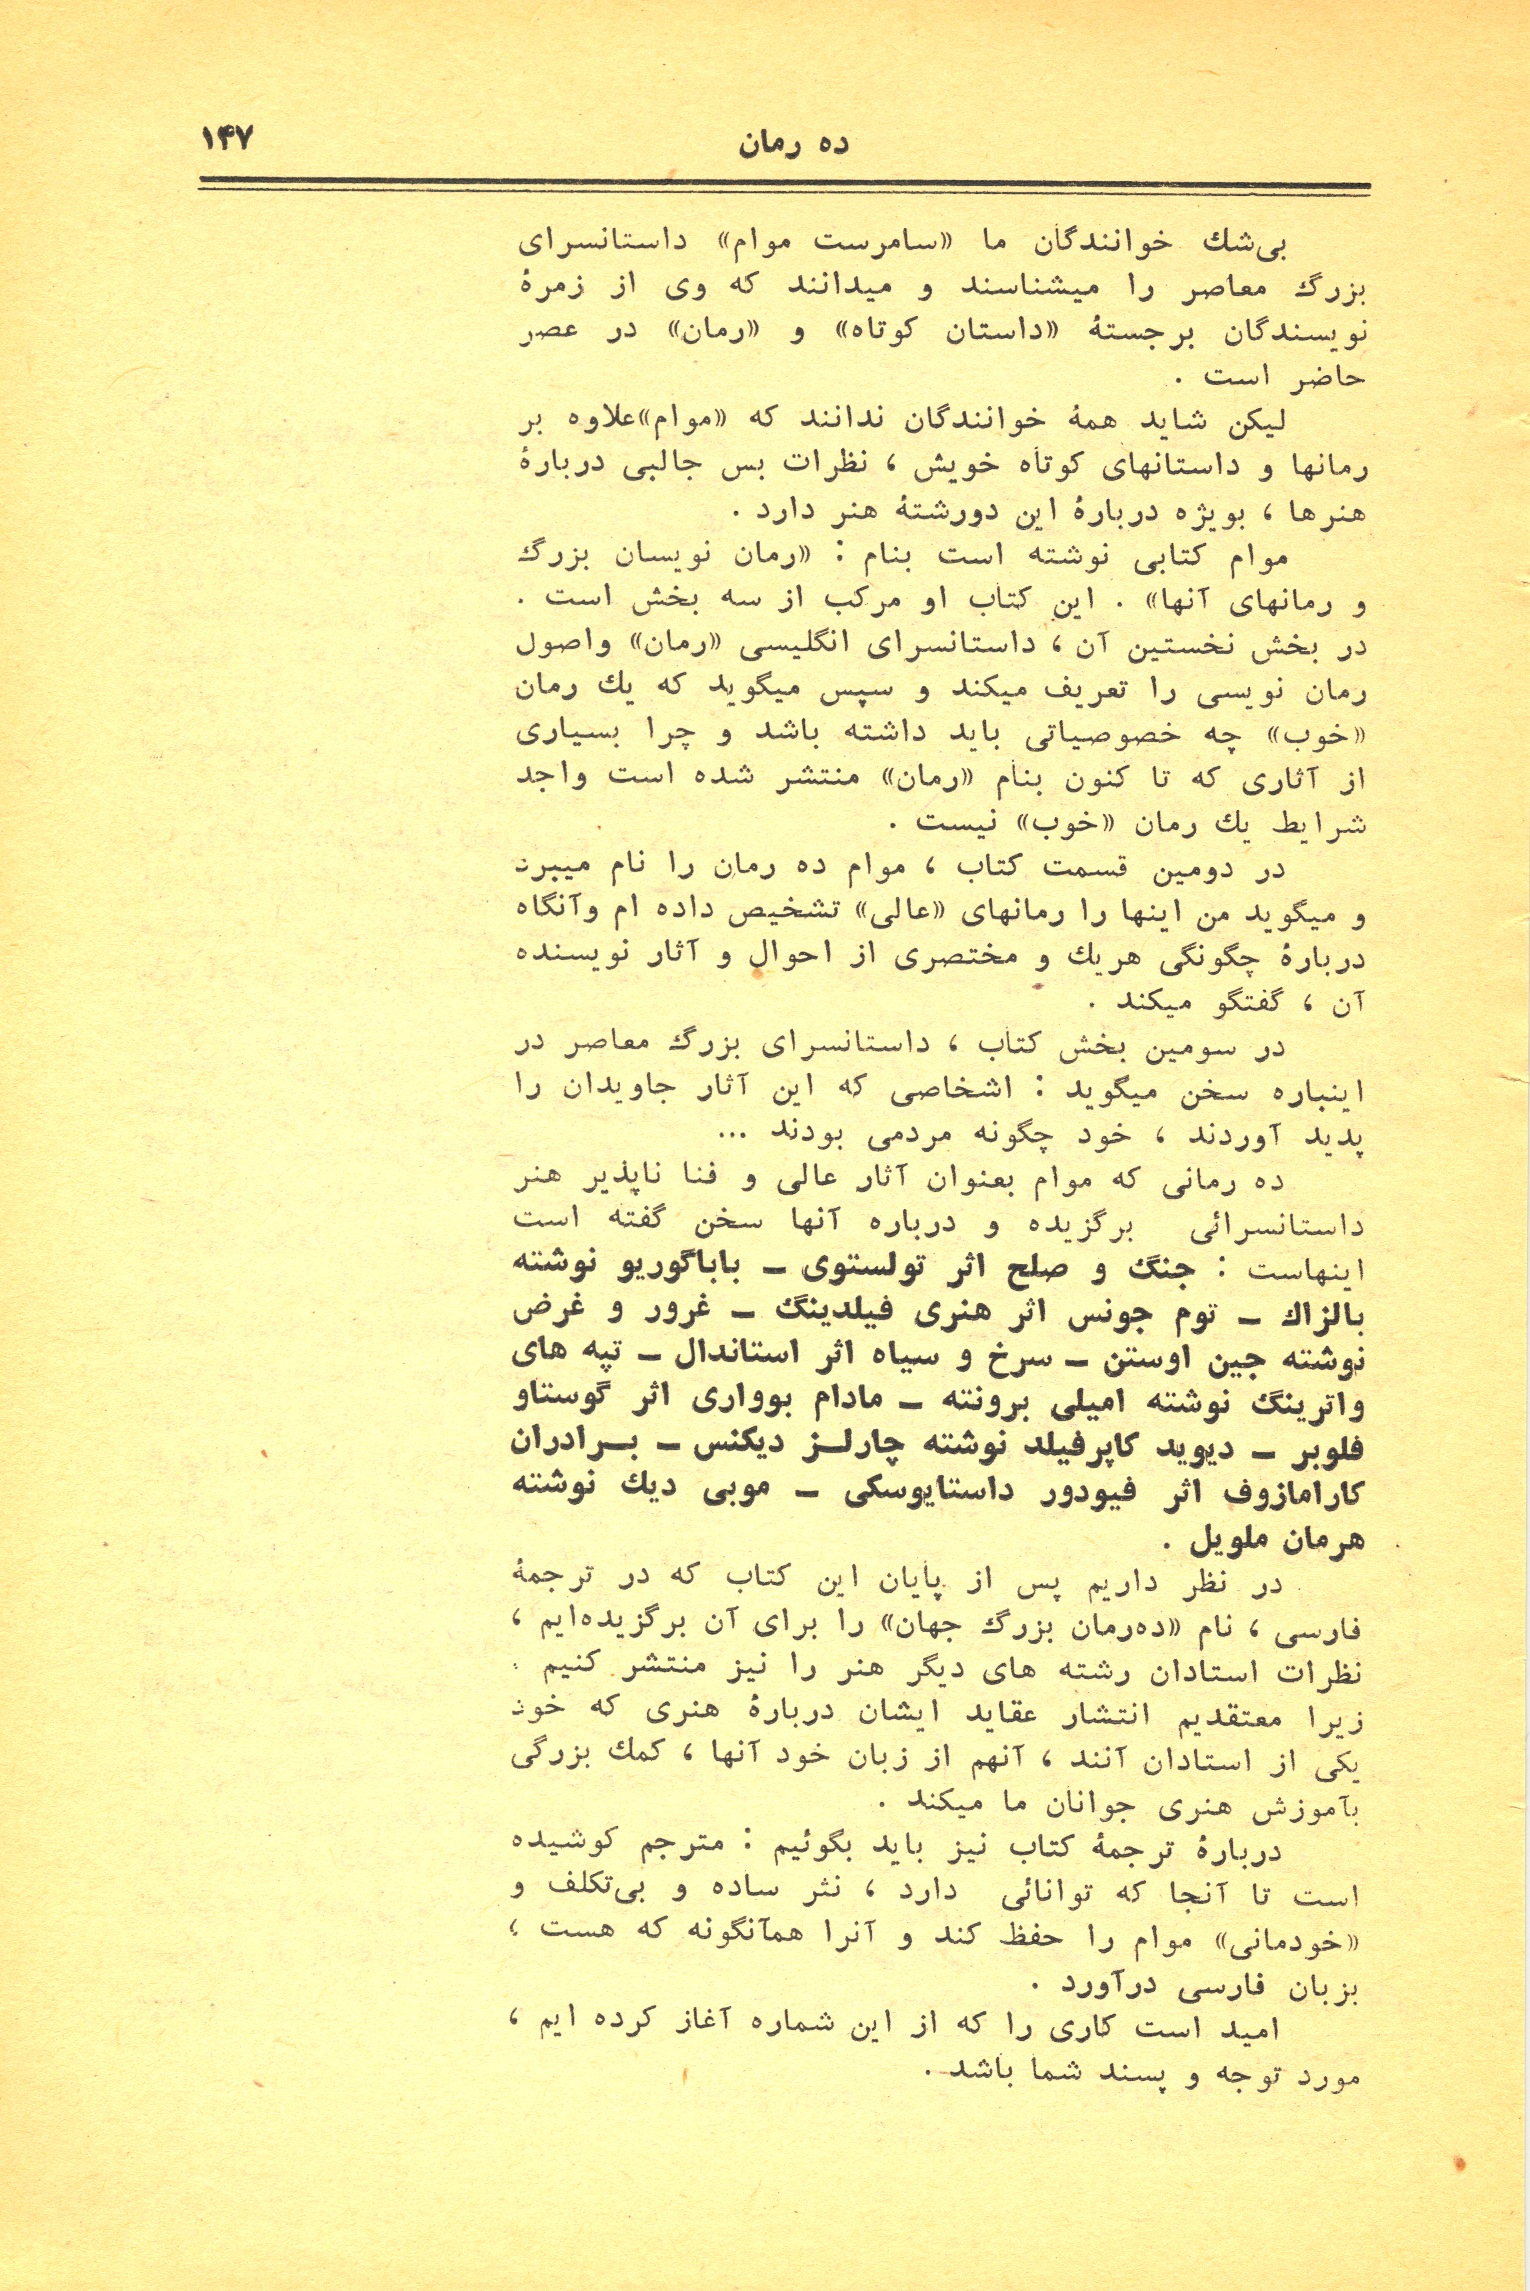 ده رمان
۱۴۷
بی‌شك خوانندگان ما «سامرست موام» داستانسرای
بزرگ معاصر را میشناسند و میدانند که وی از زمرهٔ
نویسندگان برجستهٔ «داستان کوتاه» و «رمان» در عصر
حاضر است .
لیکن شاید همهٔ خوانندگان ندانند که «موام»علاوه بر
رمانها و داستانهای کوتاه خویش ، نظرات بس جالبی دربارهٔ
هنرها ، بویژه دربارهٔ این دورشتهٔ هنر دارد .
موام کتابی نوشته است بنام : «رمان نویسان بزرگ
و رمانهای آنها» . این کتاب او مرکب از سه بخش است .
در بخش نخستین آن ، داستانسرای انگلیسی «رمان» واصول
رمان نویسی را تعریف میکند و سپس میگوید که یك رمان
«خوب» چه خصوصیاتی باید داشته باشد و چرا بسیاری
از آثاری که تا کنون بنام «رمان» منتشر شده است واجد
شرایط یك رمان «خوب» نیست .
در دومین قسمت کتاب ، موام ده رمان را نام میبرد
و میگوید من اینها را رمانهای «عالی» تشخیص داده ام وآنگاه
دربارهٔ چگونگی هریك و مختصری از احوال و آثار نویسنده
آن ، گفتگو میکند .
در سومین بخش کتاب ، داستانسرای بزرگ معاصر در
اینباره سخن میگوید : اشخاصی که این آثار جاویدان را
پدید آوردند ، خود چگونه مردمی بودند ...
ده رمانی که موام بعنوان آثار عالی و فنا ناپذیر هنر
داستانسرائی برگزیده و درباره آنها سخن گفته است
اینهاست : جنگ و صلح اثر تولستوی ـ باباگوریو نوشته
بالزاك ـ توم جونس اثر هنری فیلدینگ ـ غرور و غرض
نوشته جین اوستن ـ سرخ و سیاه اثر استاندال ـ تپه های
واترینگ نوشته امیلی برونته ـ مادام بوواری اثر گوستاو
فلوبر ـ دیوید کاپرفیلد نوشته چارلـز دیکنس ـ بـرادران
کارامازوف اثر فیودور داستایوسکی ـ موبی دیك نوشته
هرمان ملویل .
در نظر داریم پس از پایان این کتاب که در ترجمهٔ
فارسی ، نام «ده‌رمان بزرگ جهان» را برای آن برگزیده‌ایم ،
نظرات استادان رشته های دیگر هنر را نیز منتشر کنیم :
زیرا معتقدیم انتشار عقاید ایشان دربارهٔ هنری که خود
یکی از استادان آنند ، آنهم از زبان خود آنها ، کمك بزرگی
بآموزش هنری جوانان ما میکند .
دربارهٔ ترجمهٔ کتاب نیز باید بگوئیم : مترجم کوشیده
است تا آنجا که توانائی دارد ، نثر ساده و بی‌تکلف و
«خودمانی» موام را حفظ کند و آنرا همآنگونه که هست ،
بزبان فارسی درآورد .
امید است کاری را که از این شماره آغاز کرده ایم ،
مورد توجه و پسند شما باشد .